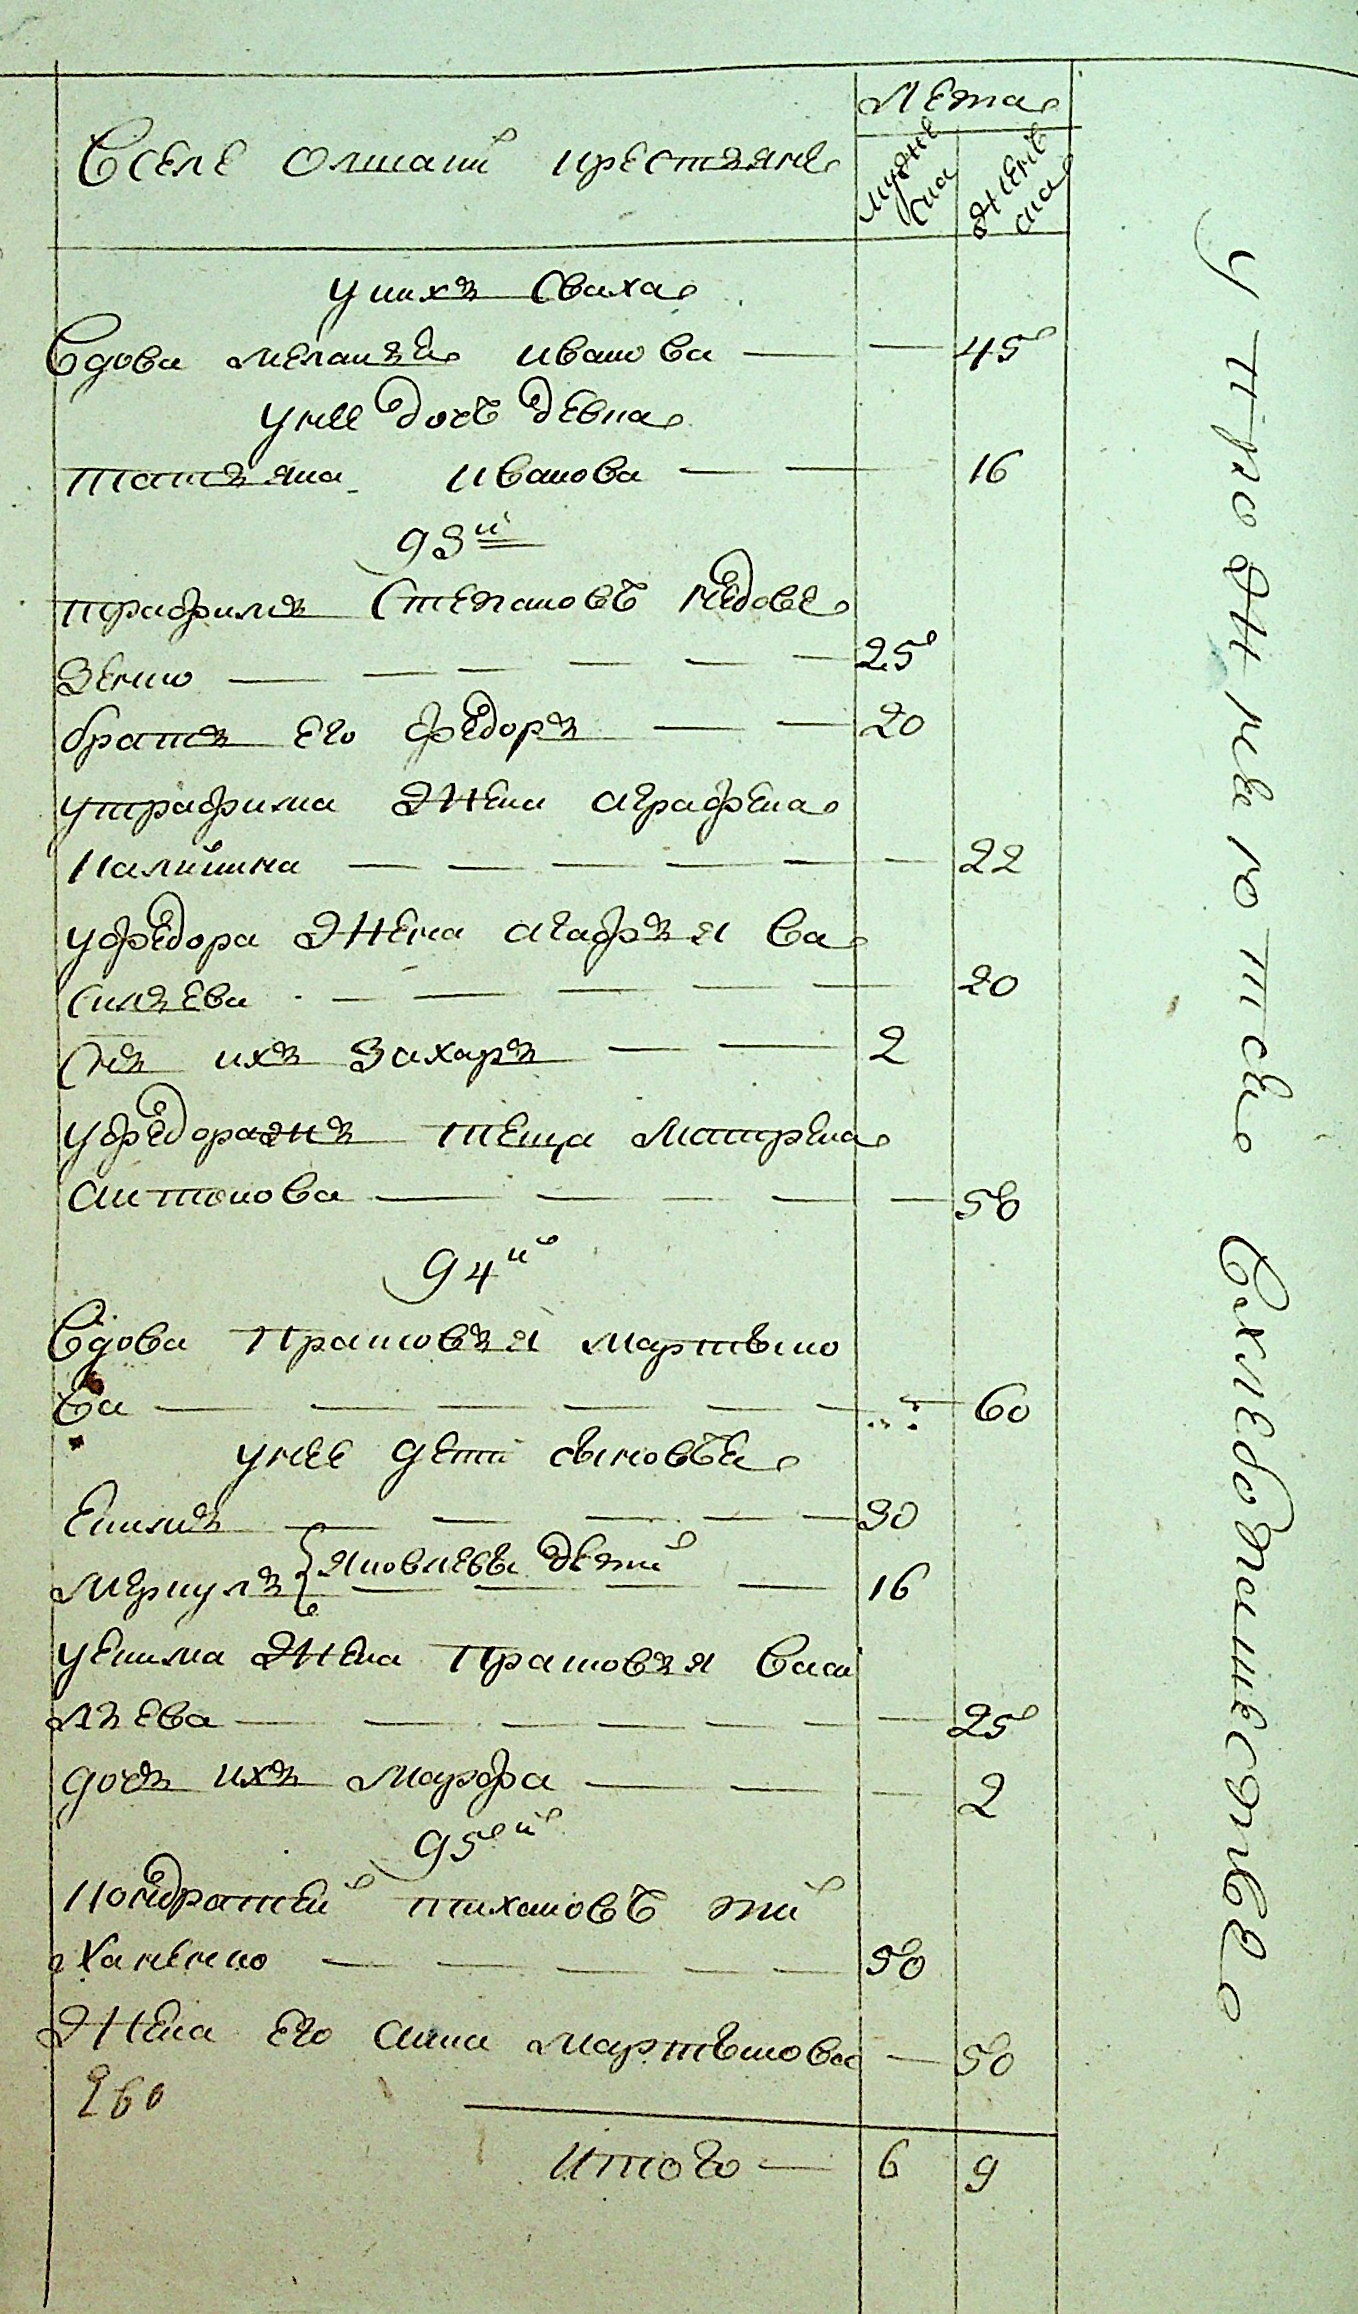 Лета
Вселе олшаной крестьяне
мужес
ка
женс
ка
уних сваха
Вдова меланья иванова — — 45
унее дочь девка
татьяна иванова — — 16
93й
трафимъ степановъ недове
Зенко — — — — — — 25
братъ его федоръ — — 20
утрафима жена аграфена
калинина — — — — — — 22
уфедора жена агафья ва
сильева — — — — — — 20
Снъ ихъ захаръ — — 2
уфедоражъ теща матрена
антонова — — — — — 50
94й
Вдова прасковья мартыно
ва — — — — — — — 60
унее дети сыновья
Екимъ — — — — — 30
меркулъ } яковлевы дети — — — — 16
уекима жена прасковья васи
льева — — — — — — — 25
дочь ихъ марфа — — — 2
95й
кондратей тихановъ ти
ханенко — — — — — 50
жена его анна мартынова — 50
итого — 6 9
упрожневаются
вхлебопашестве